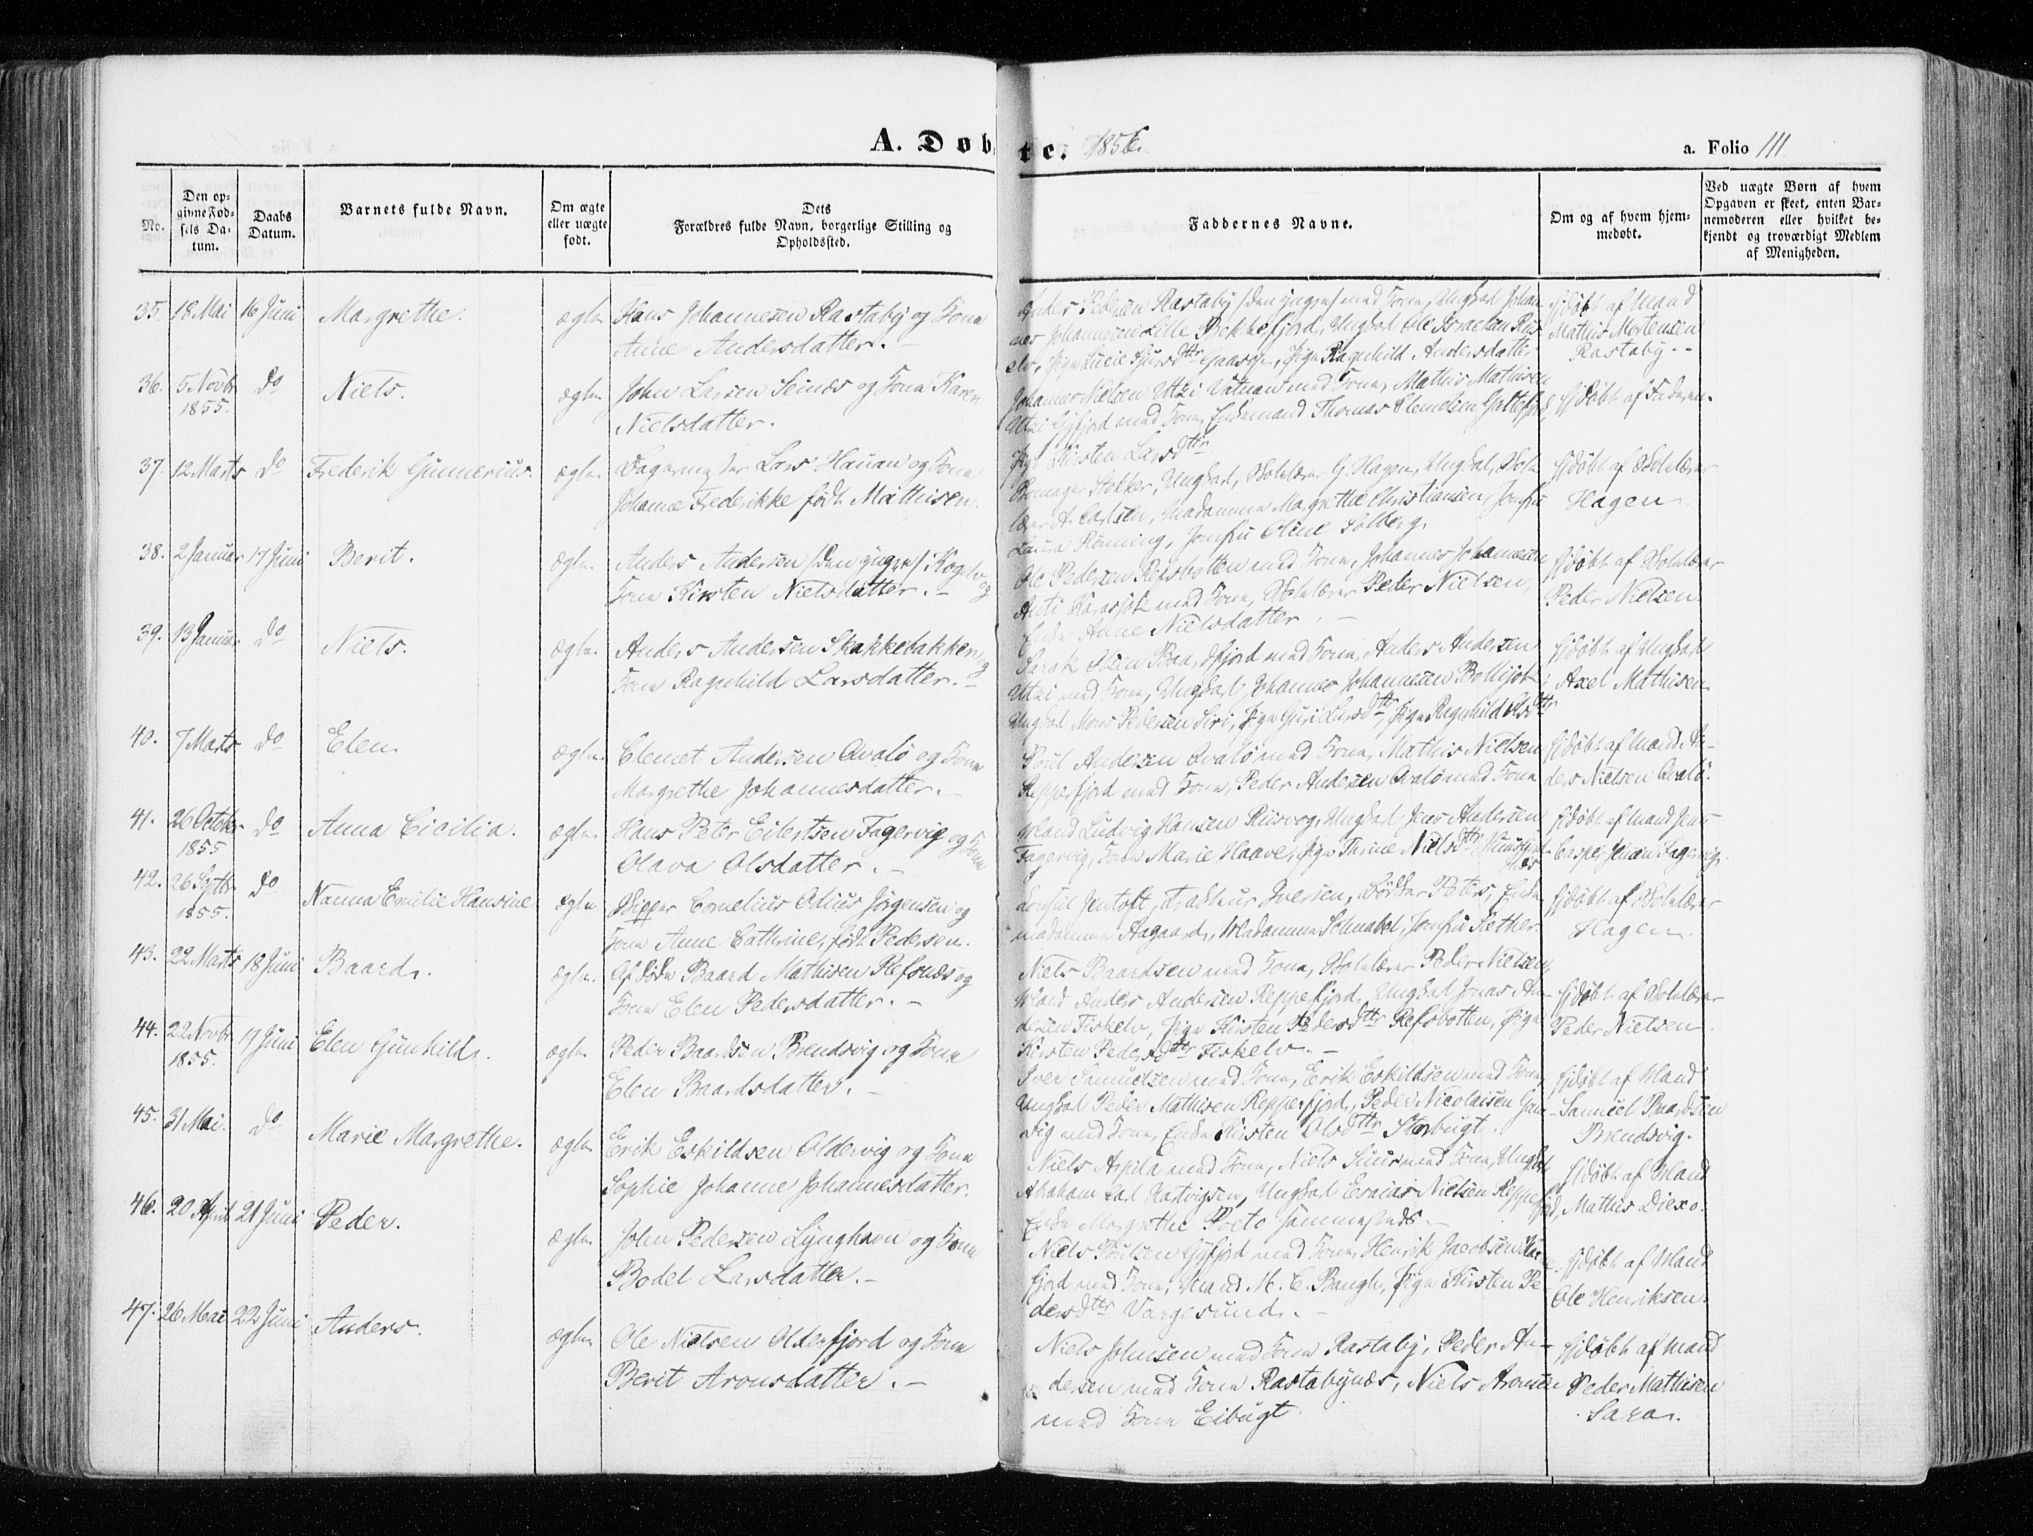 A. Døbte. 1856.
a. Folio 111
No.
Den op-
givne Fød-
sels Da-
tum.
Daabs
Datum.
Barnets fulde Navn.
Om ægte
eller uægte
født.
Dets
Forældres fulde Navn, borgerlige Stilling og
Opholdssted.
Faddernes Navne.
Om og af hvem hjem-
medøbt.
Ved uægte Børn af hvem
Opgaven er skeet, enten Bar-
nemoderen eller hvilket be-
kjendt og troværdigt Medlem
af Menigheden.
35. 18 Mai 16 Juni Margrethe. ægte. Hans Johannesen Rastaby og Kone
Anne Andersdatter.
Anders Olsen Rastaby (den yngre) med Kone, Ungkarl Johan-
nes Johannesen Lille Bekkefjord, Ungkarl Ole
elv, Pige Lucie Pige Ragnhild Andersdatter
hjdøbt af Mand
Mathis Mortensen
Rastaby.
36. 5 Novbr 1855. do Niels. ægte John Larsen Seinæs og Kone Karen
Nielsdatter.
Johannes Nielsen Utzi med Kone, Mathis Mathisen
Utzi med Kone, Thomas Clemetsen
Pige Kirsten Larsdtr
hjdøbt af Faderen.
37. 12 Marts do Frederik Gunnerius. ægte. Lars Hauan og Kone
Johanne Frederikke født Mathisen.
Stokker, Ungkarl, Skolelærer G. Hagen, Ungkarl, Skole-
lærer A. Carlsen, Madamme Margrethe Christiansen, Jomfru
Laura Rønning, Jomfru Oline Solberg.
hjdøbt af Skolelærer
Hagen.
38. 2 Januar 17 Juni Berit. ægte. Anders Andersen (den yngre) og
Kone Kirsten Nielsdatter.
Ole Pedersen Refsbotten med Kone, Johannes Johannesen
Karasjok med Kone, Skolelærer Peder Nielsen,
Enke Anne Nielsdatter.
hjdøbt af Skolelærer
Peder Nielsen
39. 13 Januar do Niels. ægte. Anders Andersen Skakkebakken og
Kone Ragnhild Larsdatter.
Sarak Olsen Baardfjord med Kone, Anders Andersen
Utzi med Kone, Ungkarl Johannes Johannesen
Ungkarl Mons Pedersen Siri, Pige Guri Larsdtr, Pige Ragnhild Olsdtr
hjdøbt af Ungkarl
Axel Mathisen
40. 7 Marts do Elen ægte. Clemet Andersen Qvalø og Kone
Margrethe Johannesdatter.
Poul Andersen Qvalø med Kone, Mathis Nielsen
Repperfjord med Kone, Peder Andersen Qvalø med Kone
hjdøbt af Mand An-
ders Nielsen Qvalø.
41. 26 October 1855 do Anna Cicilia. ægte. Hans Peter Eilertsen Fagervig og Kone
Olava Olsdatter.
Mand Ludvig Hansen Ungkarl Jens Andersen
Fagervig, Kone Marie Haave, Pige Thrine Nielsdtr
hjdøbt af Mand Jens
Casper Jensen Fagervig.
42. 26 Septbr 1855. do Nanna Emilie Hansine ægte Skipper Cornelius Jørgensen og
Kone Anne Cathrine, født Pedersen.
Jentoft, Iversen, Peters,
Madamme Aagaard, Madamme Schnabel, Jomfru Sæther.
hjdøbt af Skolelærer
Hagen.
43. 22 Marts 18 Juni Baard. ægte. Afdøde Baard Mathisen Refsnæs og
Kone Elen Pedersdatter.
Niels Baardsen med Kone, Skolelærer Peder Nielsen,
Mand Anders Andersen Repperfjord, Ungkarl Jonas An-
dersen Fiskelv, Pige Kirsten Pedersdtr Refsbotten, Pige
Kirsten Pedersdtr Fiskelv.
hjdøbt af Skolelærer
Peder Nielsen
44. 22 Novbr 1855. 17 Juni Elen Gunhild. ægte. Peder Baardsen Brendsvig og Kone
Elen Baardsdatter.
Iver Samuelsen med Kone, Erik Eskildsen med Kone,
Ungkarl Peder Mathisen Repperfjord, Peder Nicolaisen
vig med Kone, Enke Kirsten Olsdtr Storbugt.
hjdøbt af Mand
Samuel Baardsen
Brendsvig.
45. 31 Mai. do Marie Margrethe. ægte Erik Eskildsen Oldervig og Kone
Sophie Johanne Johannesdatter.
Niels Aspila med Kone, Niels med Kone, Ungkarl
Abraham Hartvigsen, Ungkarl Esaias Nielsen Repperfjord,
Enke Margrethe Poeto sammesteds.
hjdøbt af Mand
Mathis
46. 20 April 21 Juni Peder. ægte John Pedersen Lynghavn og Kone
Bodel Larsdatter.
Niels Poulsen med Kone, Henrik Jacobsen
fjord med Kone, Mand M. C. Baugh, Pige Kirsten Pe-
dersdtr Vargesund.
hjdøbt af Mand
Ole Henriksen.
47. 26 Mai 22 Juni Anders. ægte Ole Nielsen Olderfjord og Kone
Berit Aronsdatter.
Niels Johnsen med Kone Rastaby, Peder An-
dersen med Kone Rastabynæs, Niels Aronsen
med Kone Eibugt
hjdøbt af Mand
Peder Mathisen
Sara.